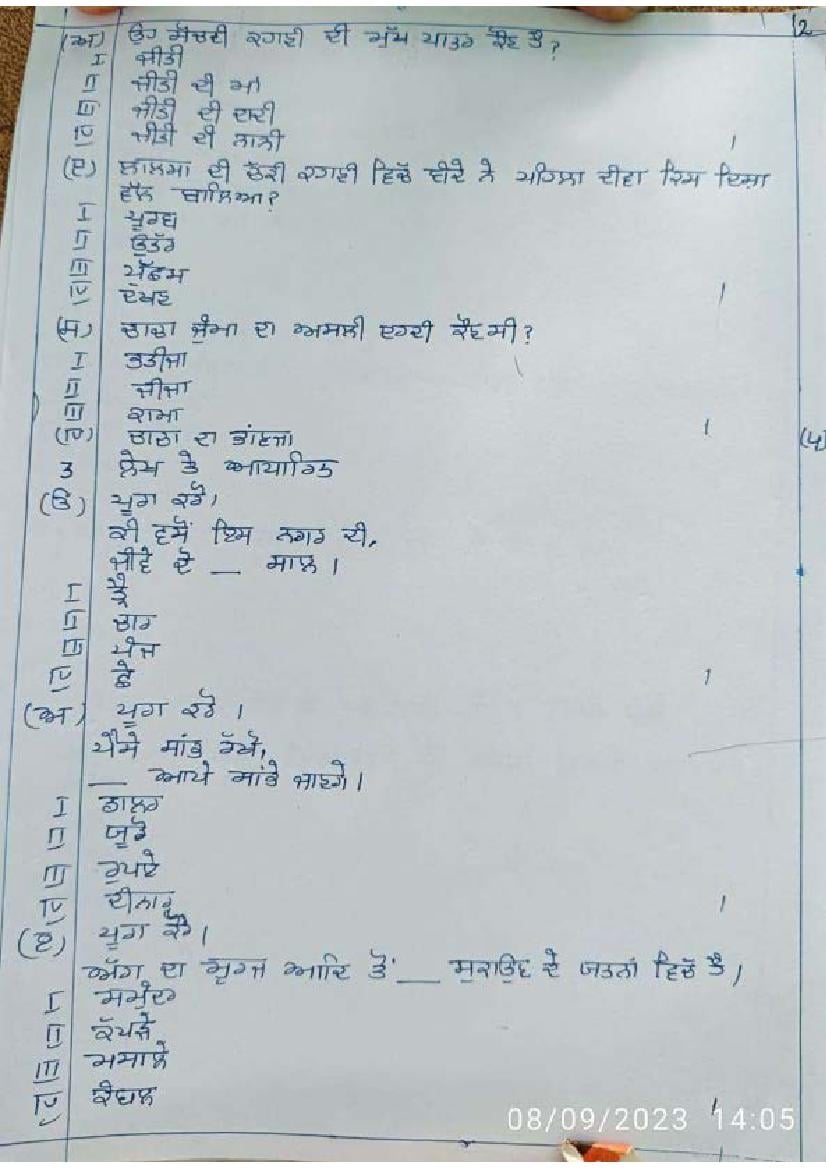 12
(ਅ) ਉਹ ਸੋਚਦੀ ਕਹਾਣੀ ਦੀ ਮੁੱਖ ਪਾਤਰ ਕੌਣ ਹੈ?
I ਜੀਤੀ
II ਜੀਤੀ ਦੀ ਮਾਂ
III ਜੀਤੀ ਦੀ ਦਾਦੀ
IV ਜੀਤੀ ਦੀ ਨਾਨੀ 1
(ੲ) ਦੀ ਕਹਾਣੀ ਵਿਚੋਂ ਵੀਰੇ ਨੇ ਪਹਿਲਾ ਦੀਵਾ ਕਿਸ ਦਿਸ਼ਾ
ਵੱਲ ਬਾਲਿਆ?
I ਪੂਰਬ
II ਉੱਤਰ
III ਪੱਛਮ
IV ਦੱਖਣ 1
(ਸ) ਚਾਚਾ ਜੁੰਮਾ ਦਾ ਅਸਲੀ ਦਰਦੀ ਕੌਣ ਸੀ?
I ਭਤੀਜਾ
II ਜੀਜਾ
III ਰਾਮਾ
(IV) ਚਾਚਾ ਦਾ ਭਾਂਣਜਾ 1
3 ਲੇਖ ਤੇ ਆਧਾਰਿਤ (4)
(ੳ) ਪੂਰਾ ਕਰੋ।
ਕੀ ਵਸੋਂ ਇਸ ਨਗਰ ਦੀ,
ਜੀਵੇ ਦੋ __ ਸਾਲ।
I ਤ੍ਰੈ
II ਚਾਰ
III ਪੰਜ
IV ਛੇ 1
(ਅ) ਪੂਰਾ ਕਰੋ।
ਪੈਸੇ ਸਾਂਭ ਰੱਖੋ,
__ ਆਪੇ ਸਾਂਭੇ ਜਾਣਗੇ।
I ਡਾਲਰ
II ਯੂਰੋ
III ਰੁਪਏ
IV ਦੀਨਾਰ 1
(ੲ) ਪੂਰਾ ਕਰੋ।
ਅੱਗ ਦਾ ਸੂਰਜ ਆਦਿ ਤੋਂ __ ਸੁਕਾਉਣ ਦੇ ਯਤਨਾਂ ਵਿਚੋਂ ਹੈ।
I ਸਮੁੰਦਰ
II ਕੱਪੜੇ
III ਮਸਾਲੇ
IV ਕੰਬਲ 1
08/09/2023 14:05